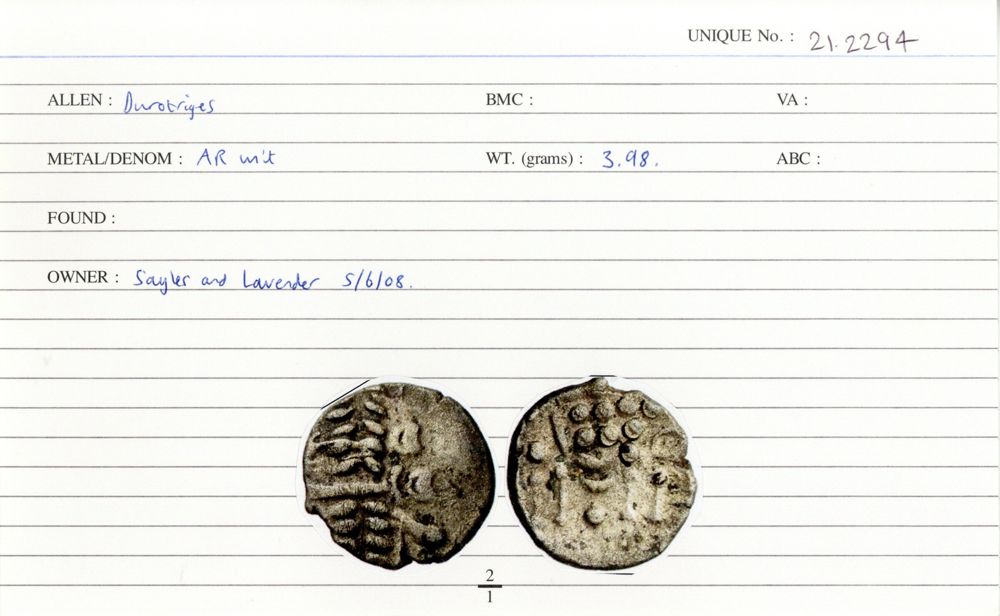 UNIQUE No. : 21.2294
ALLEN : Durotriges BMC : VA :
METAL/DENOM : AR unit WT. (grams) : 3.98. ABC :
FOUND :
OWNER : Sayles and Lavender 5/6/08.
2
1